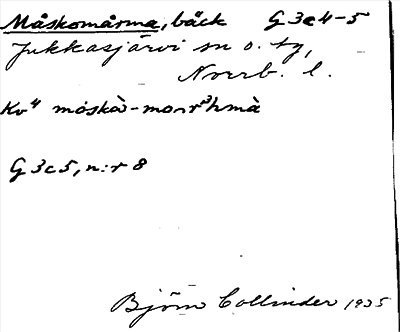 Måskomårma, bäck G 3c4-5
Jukkasjärvi sn o. tg,
Norrb. l.
Kv⁴
G 3c5, n:r 8
Björn Collinder 1935